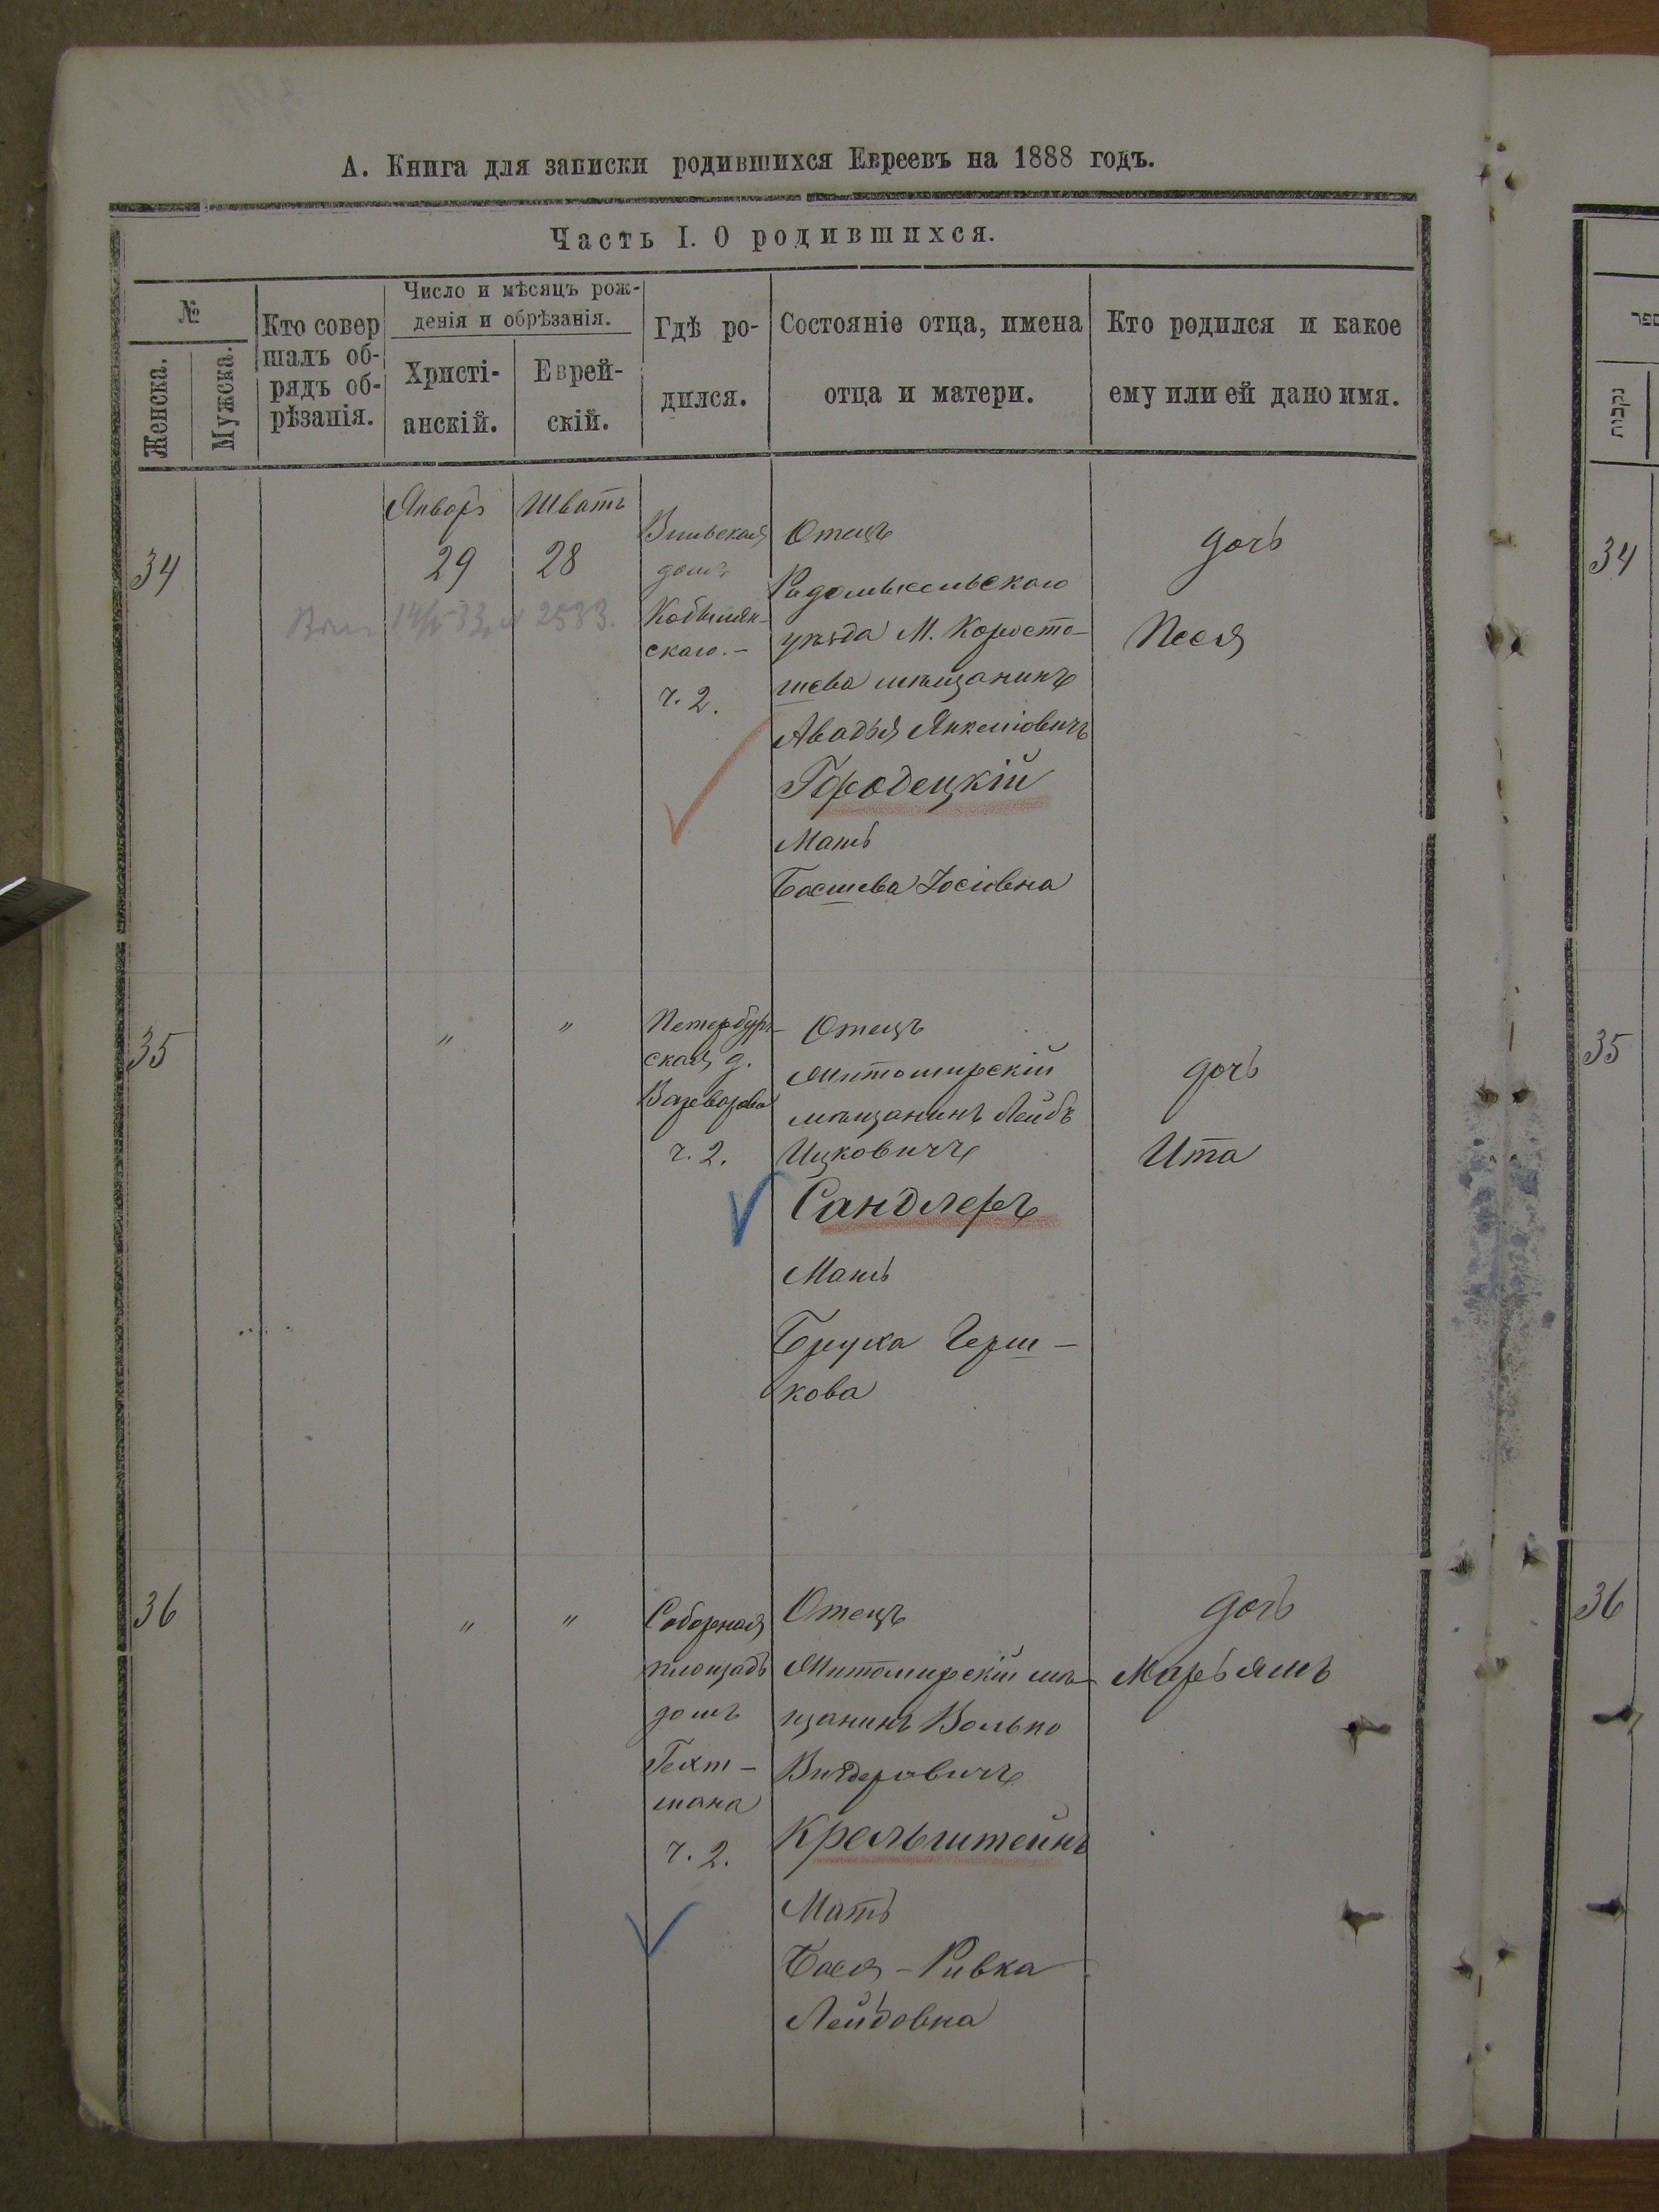 А. Книга для записки родившихся Евреевъ на 1888 годъ.
Часть I. О родившихся.
№
Женска.
Мужска.
Кто совер
шалъ об-
рядъ об-
рѣзанія.
Число и мѣсяцъ рож-
денія и обрѣзанія.
Христі-
анскій.
Еврей-
скій.
Гдѣ ро-
дился.
Состояніе отца, имена
отца и матери.
Кто родился и какое
ему или ей дано имя.
34
Январь
29
Шватъ
28
14/V-33 2583.
Вильская
домъ
скаго.-
ч. 2.
Отецъ
Радомысельскаго
уѣзда М. Коросты-
шева мѣщанинъ
Авадья Янкелiовичъ
Городецкій
Мать
Басшева Іосiовна
дочь
Песя
35
"
"
Петербург-
ская д.
ч. 2.
Отецъ
Житомирскій
мѣщанинъ Лейбъ
Ицковичъ
Сандлеръ
Мать
Бруха Герш-
кова
дочь
Ита
36
"
"
Соборная
площадь
домъ
Гехт-
мана
ч. 2.
Отецъ
Житомирскій мѣ-
щанинъ Волько
Крельштейнъ
Мать
Бася-Ривка
Лейбовна
дочь
Марьямъ
ספר
נקבות
34
35
36